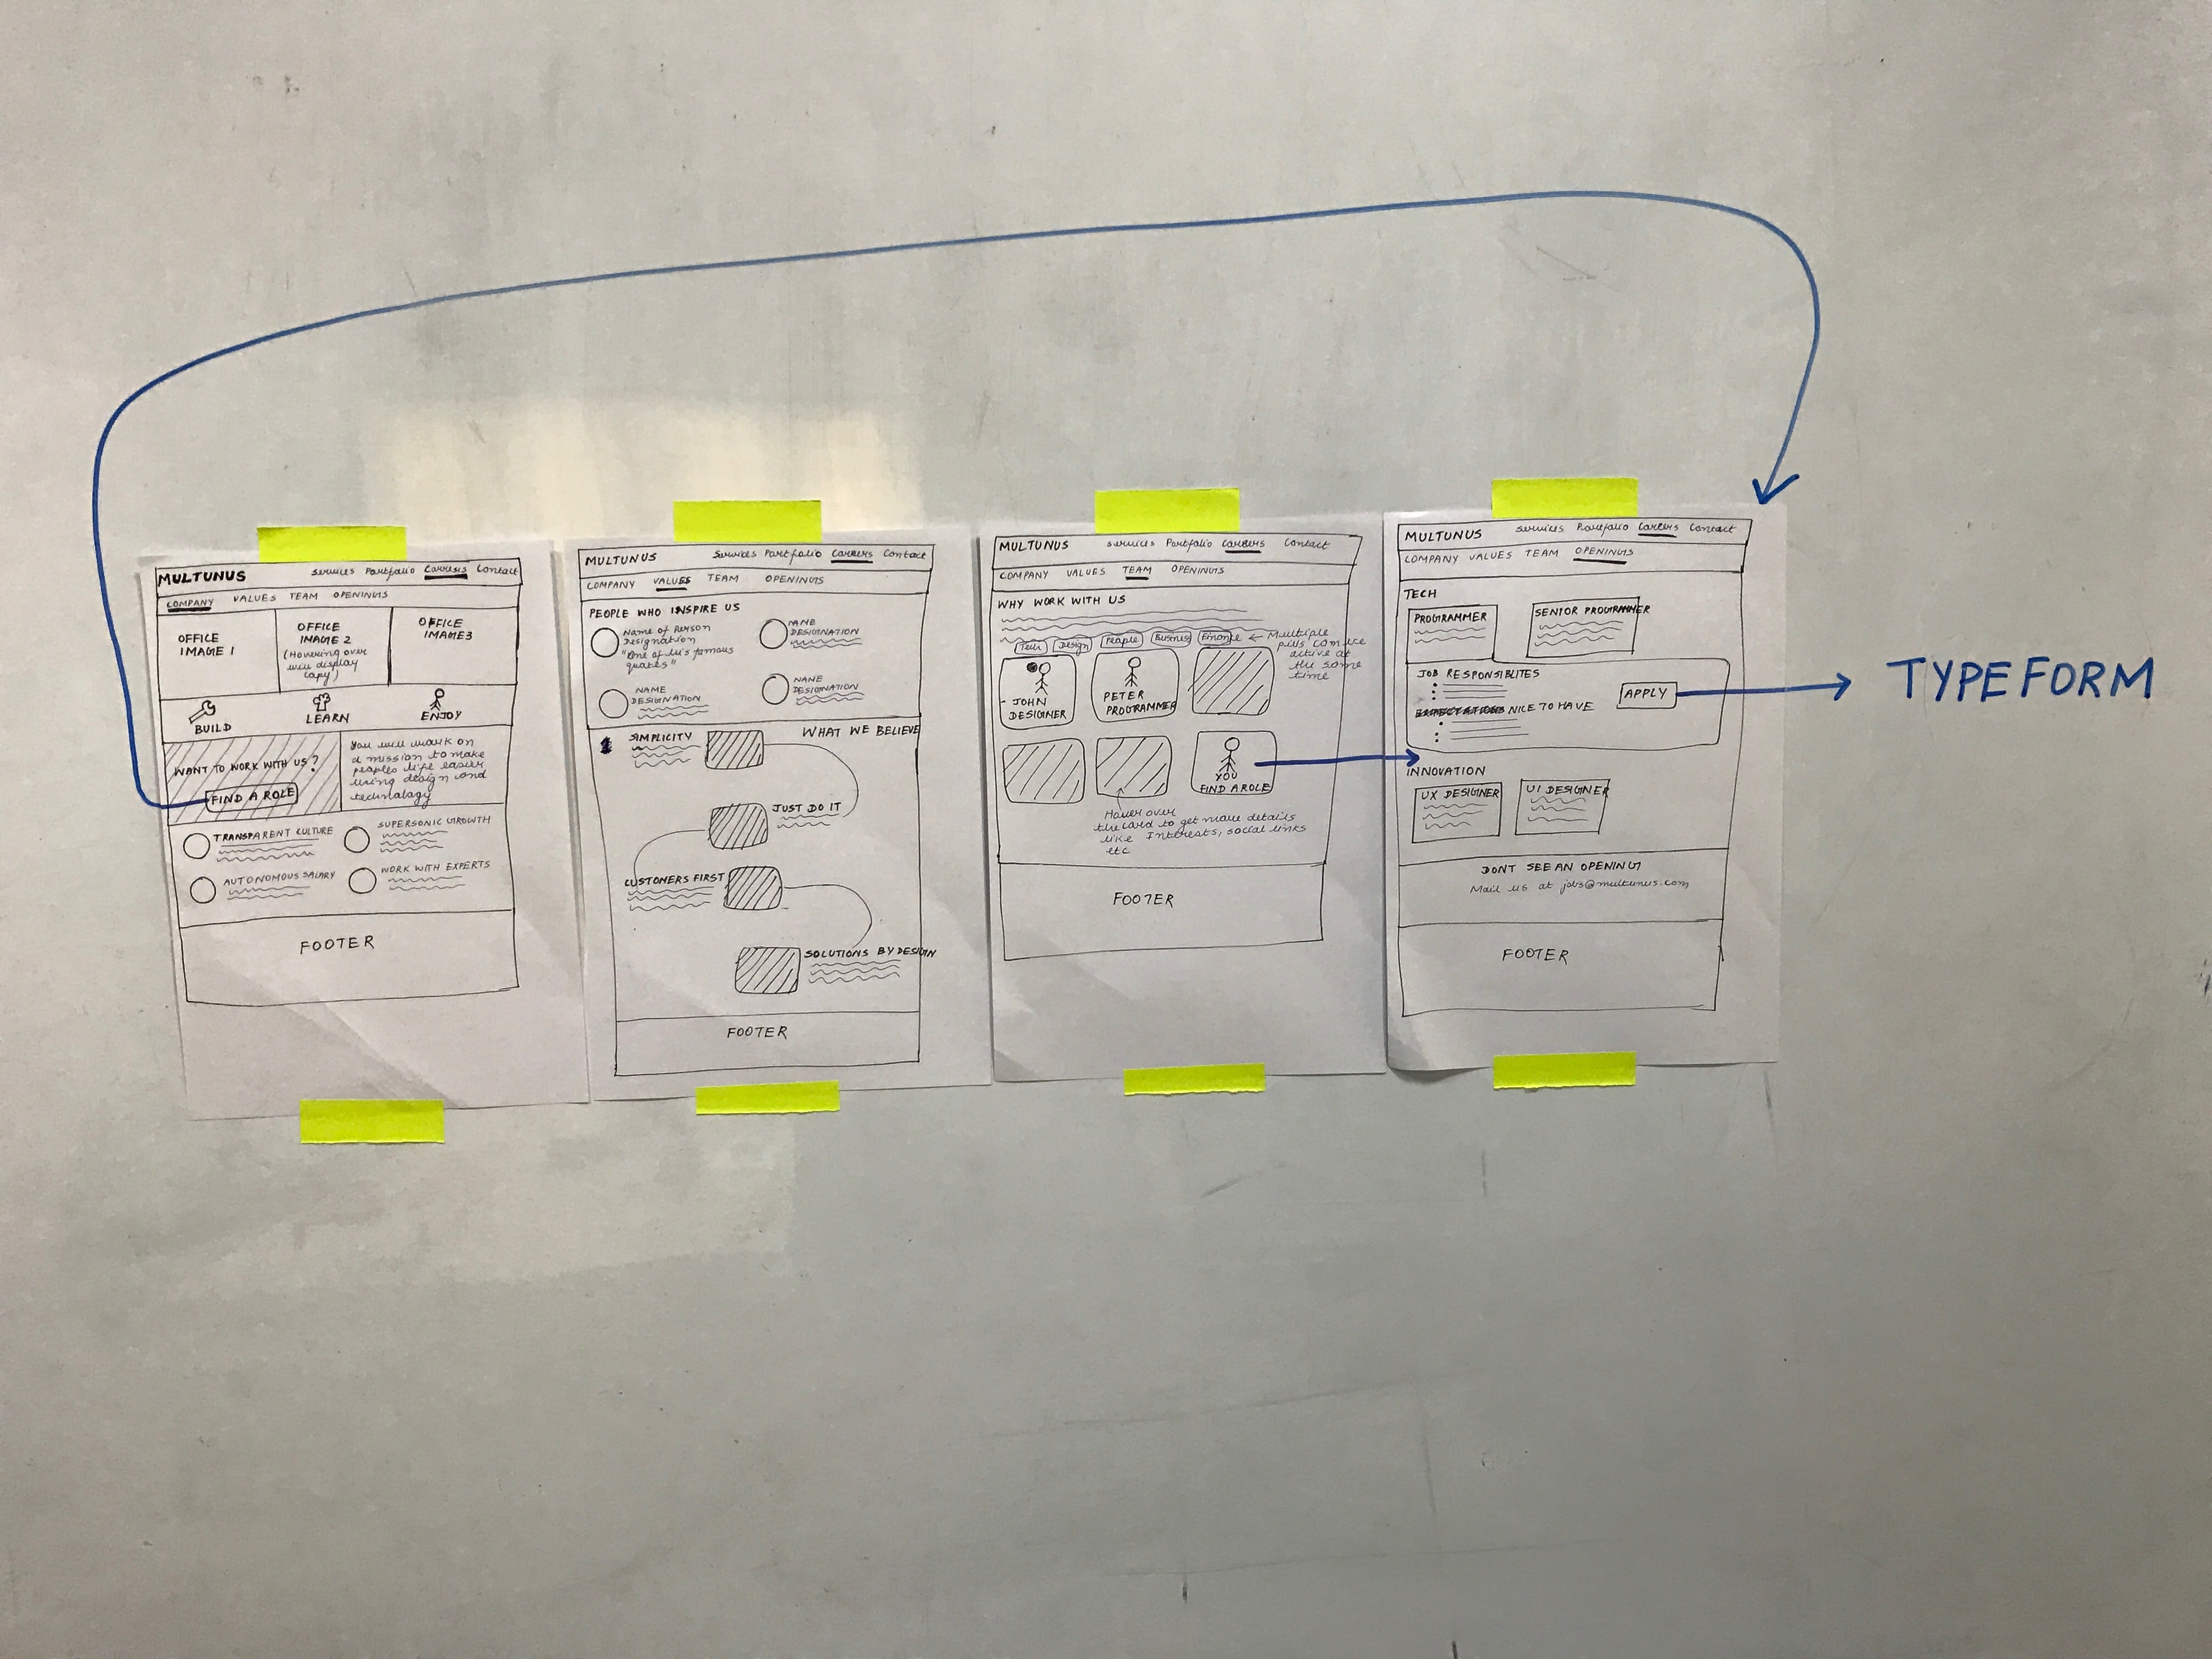 MULTUNUS Services Portfolio Careers Contact
COMPANY VALUES TEAM OPENINGS
OFFICE
IMAGE 1
OFFICE
IMAGE 2
(Hovering over
will display
copy)
OFFICE
IMAGE3
BUILD
LEARN
ENJOY
WANT TO WORK WITH US?
FIND A ROLE
You will work on
a mission to make
peoples life easier
using design and
technology
TRANSPARENT CULTURE
SUPERSONIC GROWTH
AUTONOMOUS SALARY
WORK WITH EXPERTS
FOOTER
MULTUNUS Services Portfolio Careers Contact
COMPANY VALUES TEAM OPENINGS
PEOPLE WHO INSPIRE US
Name of Person
Designation
"One of his famous
quotes"
NAME
DESIGNATION
NAME
DESIGNATION
NAME
DESIGNATION
WHAT WE BELIEVE
SIMPLICITY
JUST DO IT
CUSTOMERS FIRST
SOLUTIONS BY DESIGN
FOOTER
MULTUNUS Services Portfolio Careers Contact
COMPANY VALUES TEAM OPENINGS
WHY WORK WITH US
Tech Design People Business Finance
Multiple
pills can be
active at
the same
time
JOHN
DESIGNER
PETER
PROGRAMMER
YOU
FIND A ROLE
Hover over
the card to get more details
like Interests, social links
etc
FOOTER
MULTUNUS Services Portfolio Careers Contact
COMPANY VALUES TEAM OPENINGS
TECH
PROGRAMMER
SENIOR PROGRAMMER
JOB RESPONSIBLITES
APPLY
NICE TO HAVE
INNOVATION
UX DESIGNER
UI DESIGNER
DONT SEE AN OPENING
Mail us at jobs@multunus.com
FOOTER
TYPEFORM